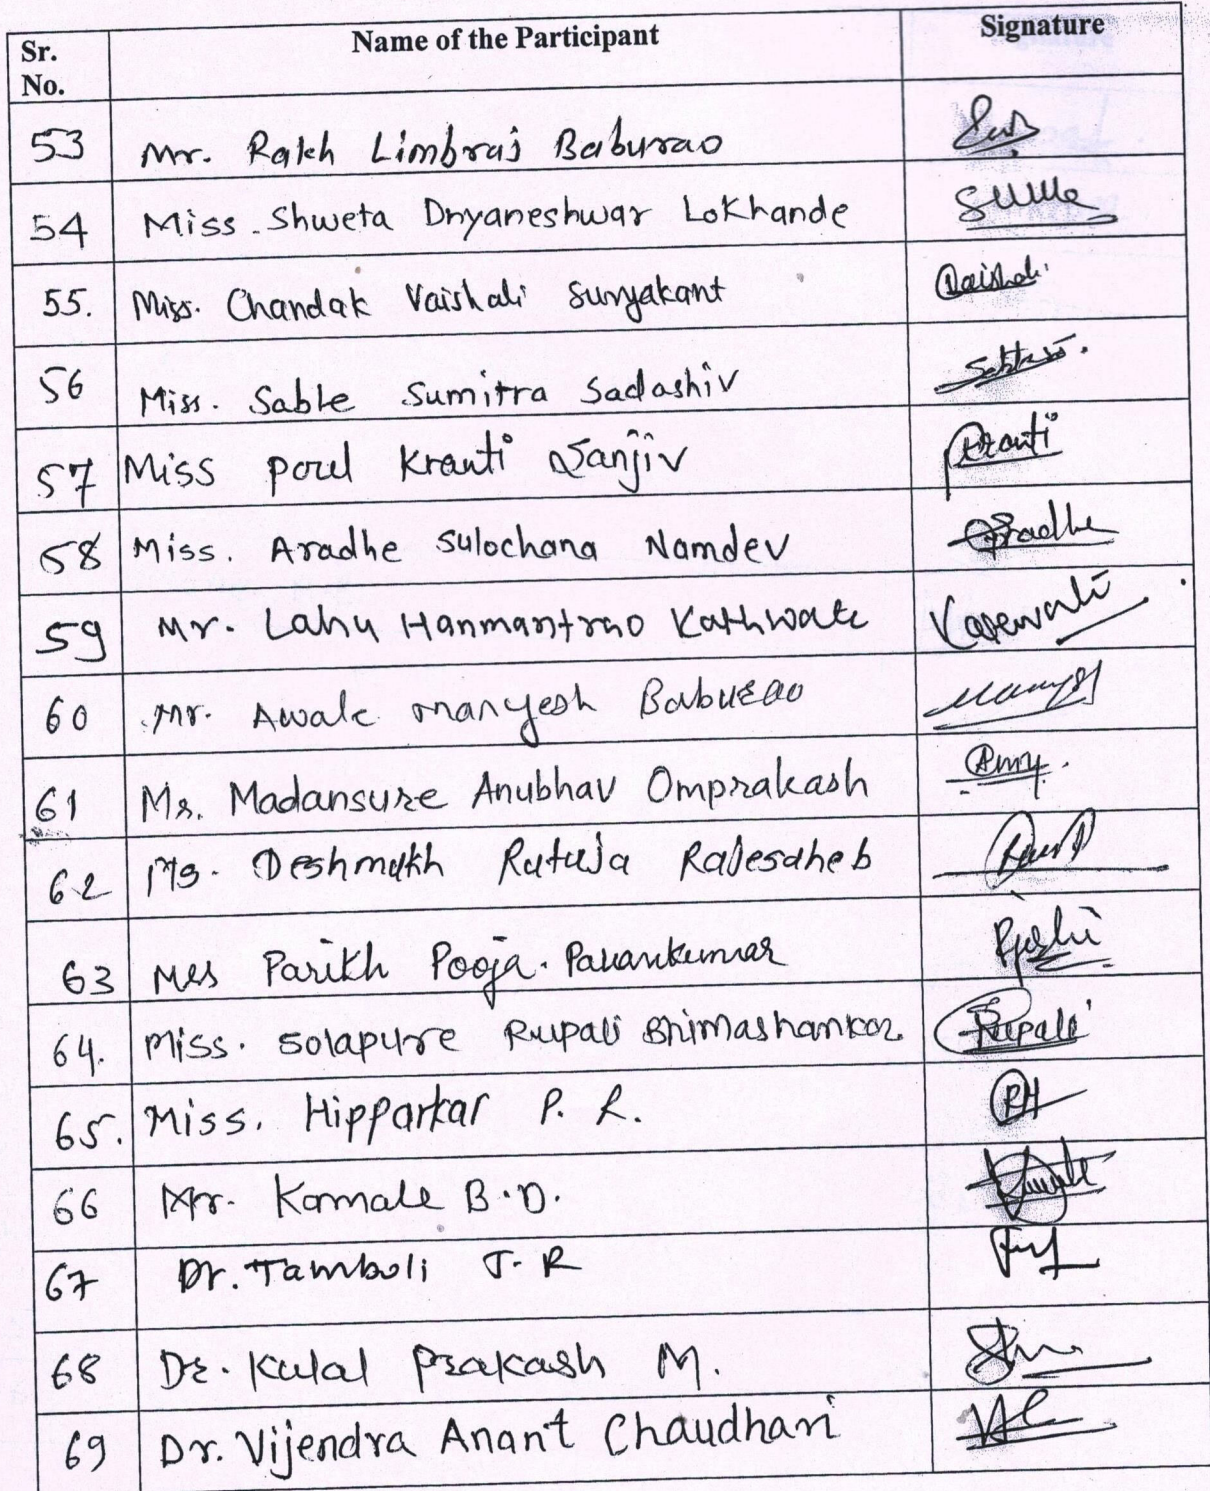 Sr. No. Name of the Participant Signature
53 Mr. Rakh Limbraj Baburao
54 Miss. Shweta Dnyaneshwar Lokhande
55. Miss. Chandak Vaishali Suryakant Vaishali
56 Miss. Sable Sumitra Sadashiv
57 Miss Poul Kranti Sanjiv Kranti
58 Miss. Aradhe Sulochana Namdev Aradhe
59 Mr. Lahu Hanmantrao Kathwate
60 Mr. Awale Mangesh Baburao
61 Mr. Madansure Anubhav Omprakash
62 Ms. Deshmukh Rutuja Rajesaheb
63 Mrs Parikh Pooja Pavankumar
64. Miss. Solapure Rupali Bhimashankar Rupali
65. Miss. Hipparkar P. R. PH
66 Mr. Kamale B.D.
67 Dr. Tamboli J. R
68 Dr. Kulal Prakash M.
69 Dr. Vijendra Anant Chaudhari